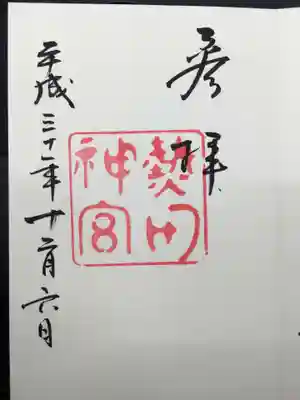 奉拝
熱田
神宮
平成三十年十二月六日